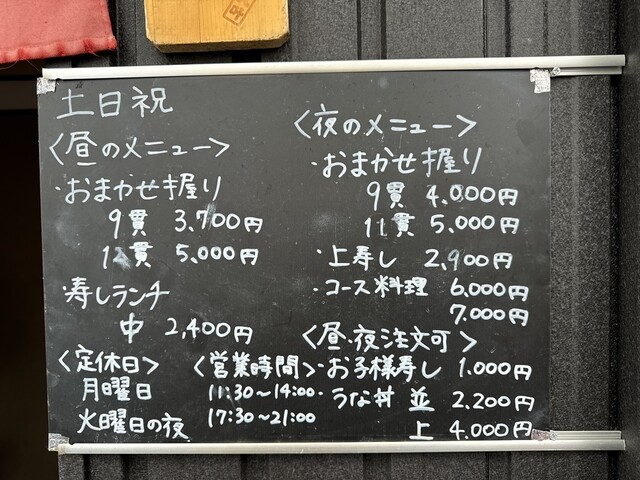 土日祝
<昼のメニュー>
・おまかせ握り
9貫 3,700円
12貫 5,000円
・寿しランチ
中 2,400円
<定休日>
月曜日
火曜日の夜
<営業時間>
11:30〜14:00
17:30〜21:00
<夜のメニュー>
・おまかせ握り
9貫 4,000円
11貫 5,000円
・上寿し 2,900円
・コース料理 6,000円
7,000円
<昼・夜注文可>
・お子様寿し 1,000円
・うな丼 並 2,200円
上 4,000円